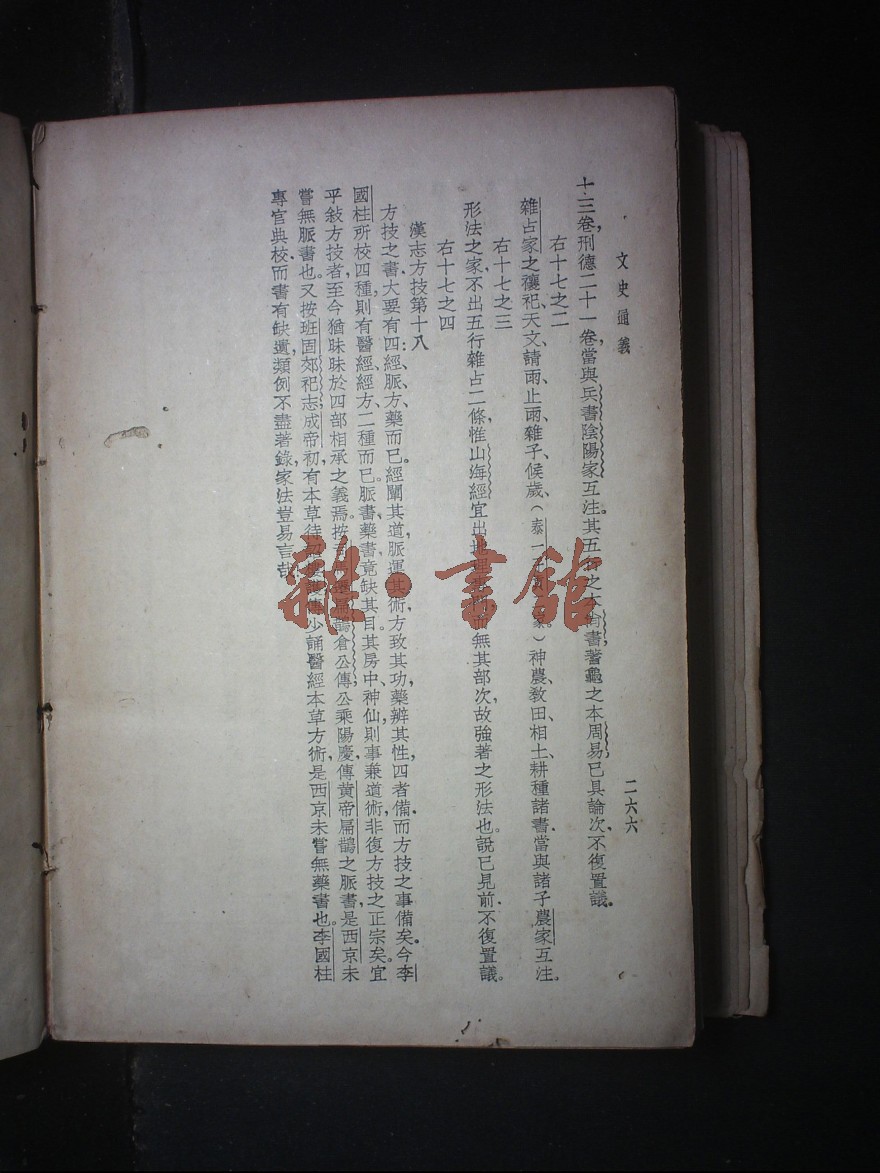 文史通義
二六六
十三卷,刑德二十一卷,當與兵書陰陽家互注。其五行之本尚書,著龜之本周易,已具論次,不復置議。
右十七之二
雜占家之禳祀天文、請雨、止雨、雜子候歲、(泰一家。)神農教田相土、耕種諸書,當與諸子農家互注。
右十七之三
形法之家,不出五行雜占二條,惟山海經宜出地理而無其部次,故強著之形法也。說已見前,不復置議。
右十七之四
漢志方技第十八
方技之書,大要有四:經、脈、方、藥而已。經闡其道,脈運其術,方致其功,藥辨其性,四者備,而方技之事備矣。今李
國柱所校四種,則有醫經、經方二種而已。脈書、藥書,竟缺其目。其房中、神仙,則事兼道術,非復方技之正宗矣。宜
乎敍方技者,至今猶昧昧於四部相承之義焉。按鵲倉公傳,公乘陽慶,傳黃帝扁鵲之脈書,是西京未
嘗無脈書也。又按班固郊祀志,成帝初,有本草待少誦醫經本草方術,是西京未嘗無藥書也。李國柱
專官典校,而書有缺遺,類例不盡著錄,家法豈易言哉
雜·書館